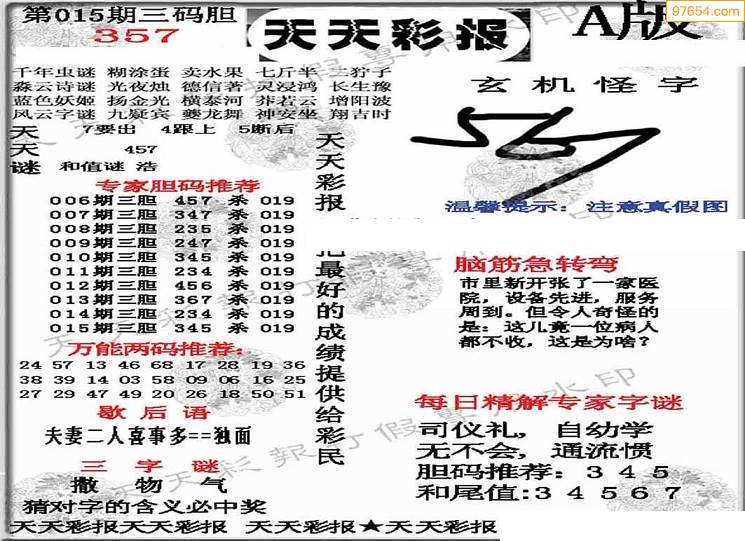 第015期三码胆
357
天天彩报
A版
97654.com
千年虫谜 糊涂蛋 卖水果 七斤半 二狞子
淼云诗谜 光夜烛 德信著 灵浸鸿 长生豫
蓝色妖姬 扬金光 横泰河 莽若云 增阳波
风云字谜 九疑宾 夔龙舞 神安坐 翔吉时
天 7要出 4跟上 5断后
天 457
谜 和值谜 浩
专家胆码推荐
006期三胆 457 杀 019
007期三胆 347 杀 019
008期三胆 235 杀 019
009期三胆 247 杀 019
010期三胆 345 杀 019
011期三胆 234 杀 019
012期三胆 456 杀 019
013期三胆 367 杀 019
014期三胆 234 杀 019
015期三胆 345 杀 019
万能两码推荐:
24 57 13 46 68 17 28 19 36
38 39 14 03 58 09 06 16 25
27 29 47 49 20 26 18 50 51
歇后语
夫妻二人喜事多==独面
三字谜
撒物气
猜对字的含义必中奖
天天彩报
把最好的成绩提供给彩民
玄机怪字
567
温馨提示：注意真假图
脑筋急转弯
市里新开张了一家医
院，设备先进，服务
周到。但令人奇怪的
是：这儿竟一位病人
都不收，这是为啥？
每日精解专家字谜
司仪礼，自幼学
无不会，通流惯
胆码推荐：345
和尾值:34567
天天彩报天天彩报 天天彩报★天天彩报